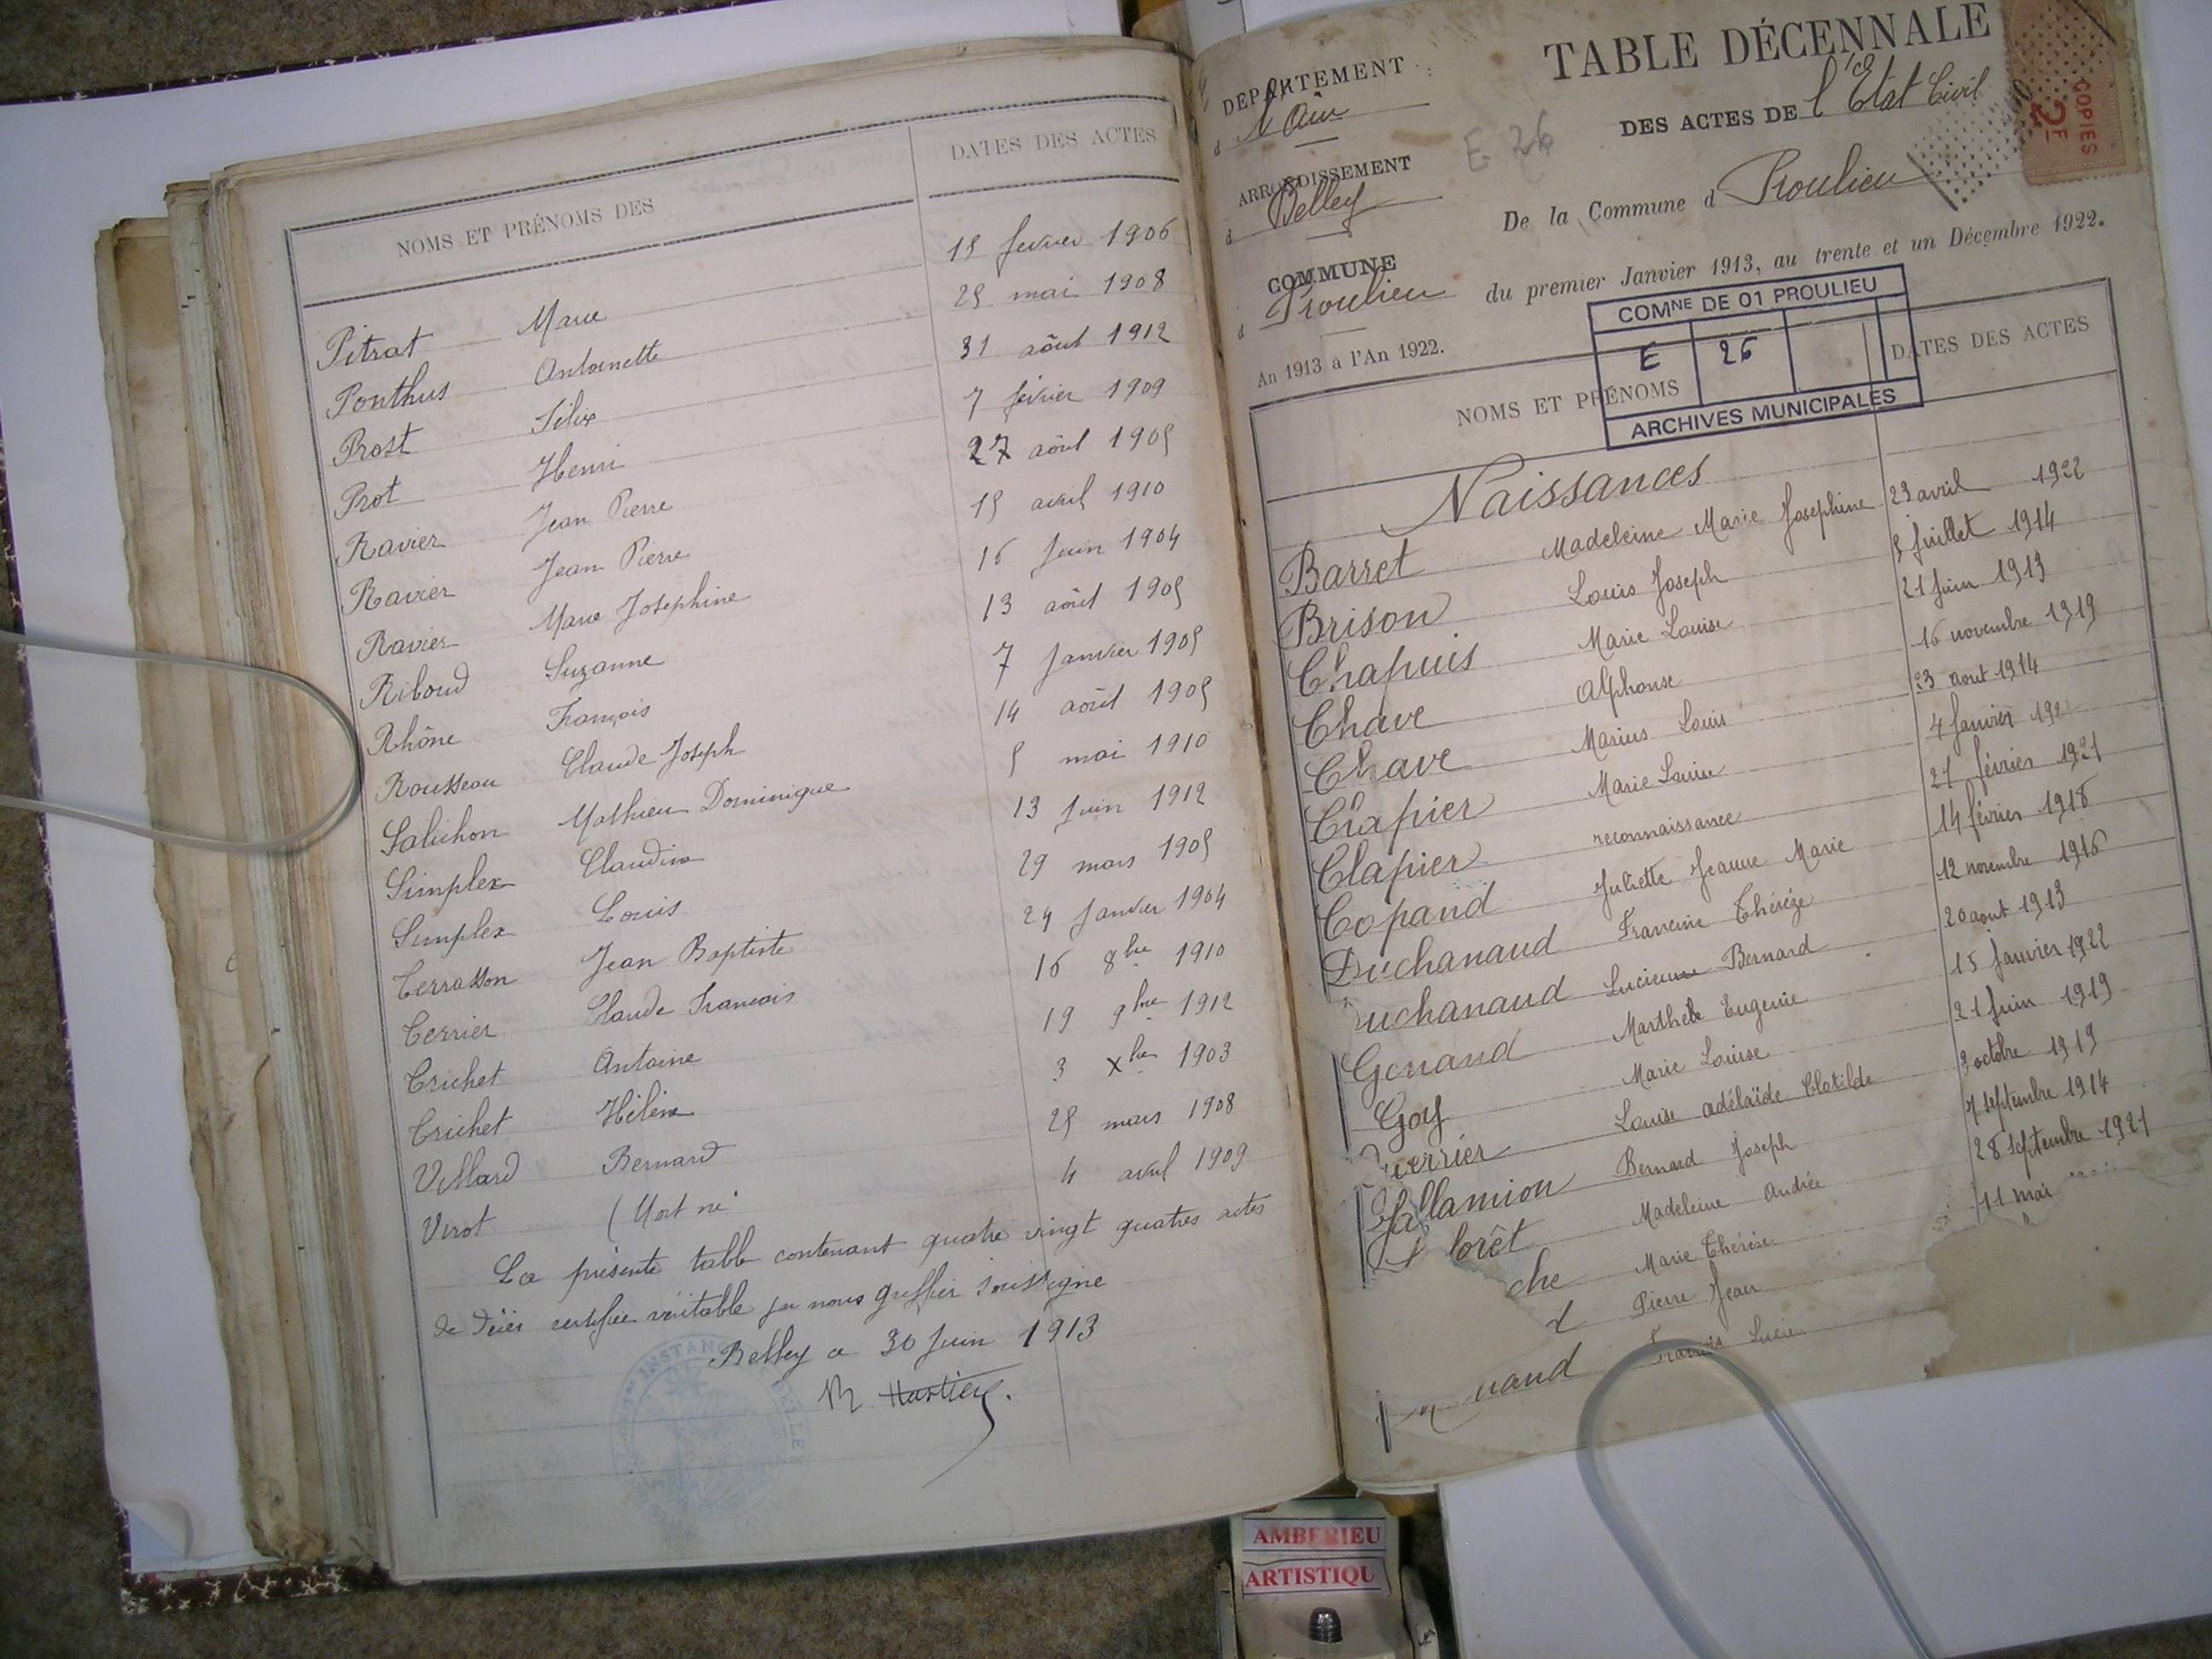 NOMS ET PRÉNOMS DES DATES DES ACTES
Pitrat Marie 15 fevrier 1906
Ponthus Antoinette 25 mai 1908
Prost Félix 31 août 1912
Prot Henri 7 février 1909
Ravier Jean Pierre 27 août 1905
Ravier Jean Pierre 15 avril 1910
Ravier Marie Josephine 16 Juin 1904
Riboud Suzanne 13 août 1905
Rhône François 7 Janvier 1905
Rousseau Claude Joseph 14 août 1905
Saluchon Mathieu Dominique 5 mai 1910
Simplex Claudine 13 Juin 1912
Simplex Louis 29 mars 1905
Terrasson Jean Baptiste 24 Janvier 1904
Terrier Claude Francois 16 8bre 1910
Trichet Antoine 19 9bre 1912
Trichet Hélène 3 Xbre 1903
Villard Bernard 25 mars 1908
Virot (Mort né 4 avril 1909
La présente table contenant quatre vingt quatres actes
de décès certifiée véritable par nous Greffier soussigné
Belley ce 30 Juin 1913
DÉPARTEMENT
d l'Ain
ARRONDISSEMENT
d Belley
COMMUNE
d Proulieu
An 1913 à l'An 1922.
E 26
TABLE DÉCENNALE
DES ACTES DE l'État Civil
De la Commune d Proulieu
du premier Janvier 1913, au trente et un Décembre 1922.
COPIES
2F
COMNE DE 01 PROULIEU
E 26
ARCHIVES MUNICIPALES
NOMS ET PRÉNOMS DATES DES ACTES
Naissances
Barret Madeleine Marie Josephine 23 avril 1922
Brison Louis Joseph 5 Juillet 1914
Chapuis Marie Louise 21 Juin 1913
Chave Alphonse 16 novembre 1919
Chave Marius Louis 23 aout 1914
Clapier Marie Louise 4 Janvier 1921
Clapier reconnaissance 27 février 1921
Copand Juliette Jeanne Marie 14 février 1918
Duchanaud Francine Thérèze 12 novembre 1916
uchanaud Lucienne Bernard 20 aout 1913
Genand Marthe Eugenie 15 Janvier 1922
Goy Marie Louise 21 Juin 1919
uerrier Louise Adélaïde Clotilde 3 octobre 1919
Jallamion Bernard Joseph 7 septembre 1914
lorêt Madeleine Andrée 28 septembre 1921
che Marie Thérèse 11 mai
Pierre Jean
nand Francis Lucien
AMBERIEU
ARTISTIQU